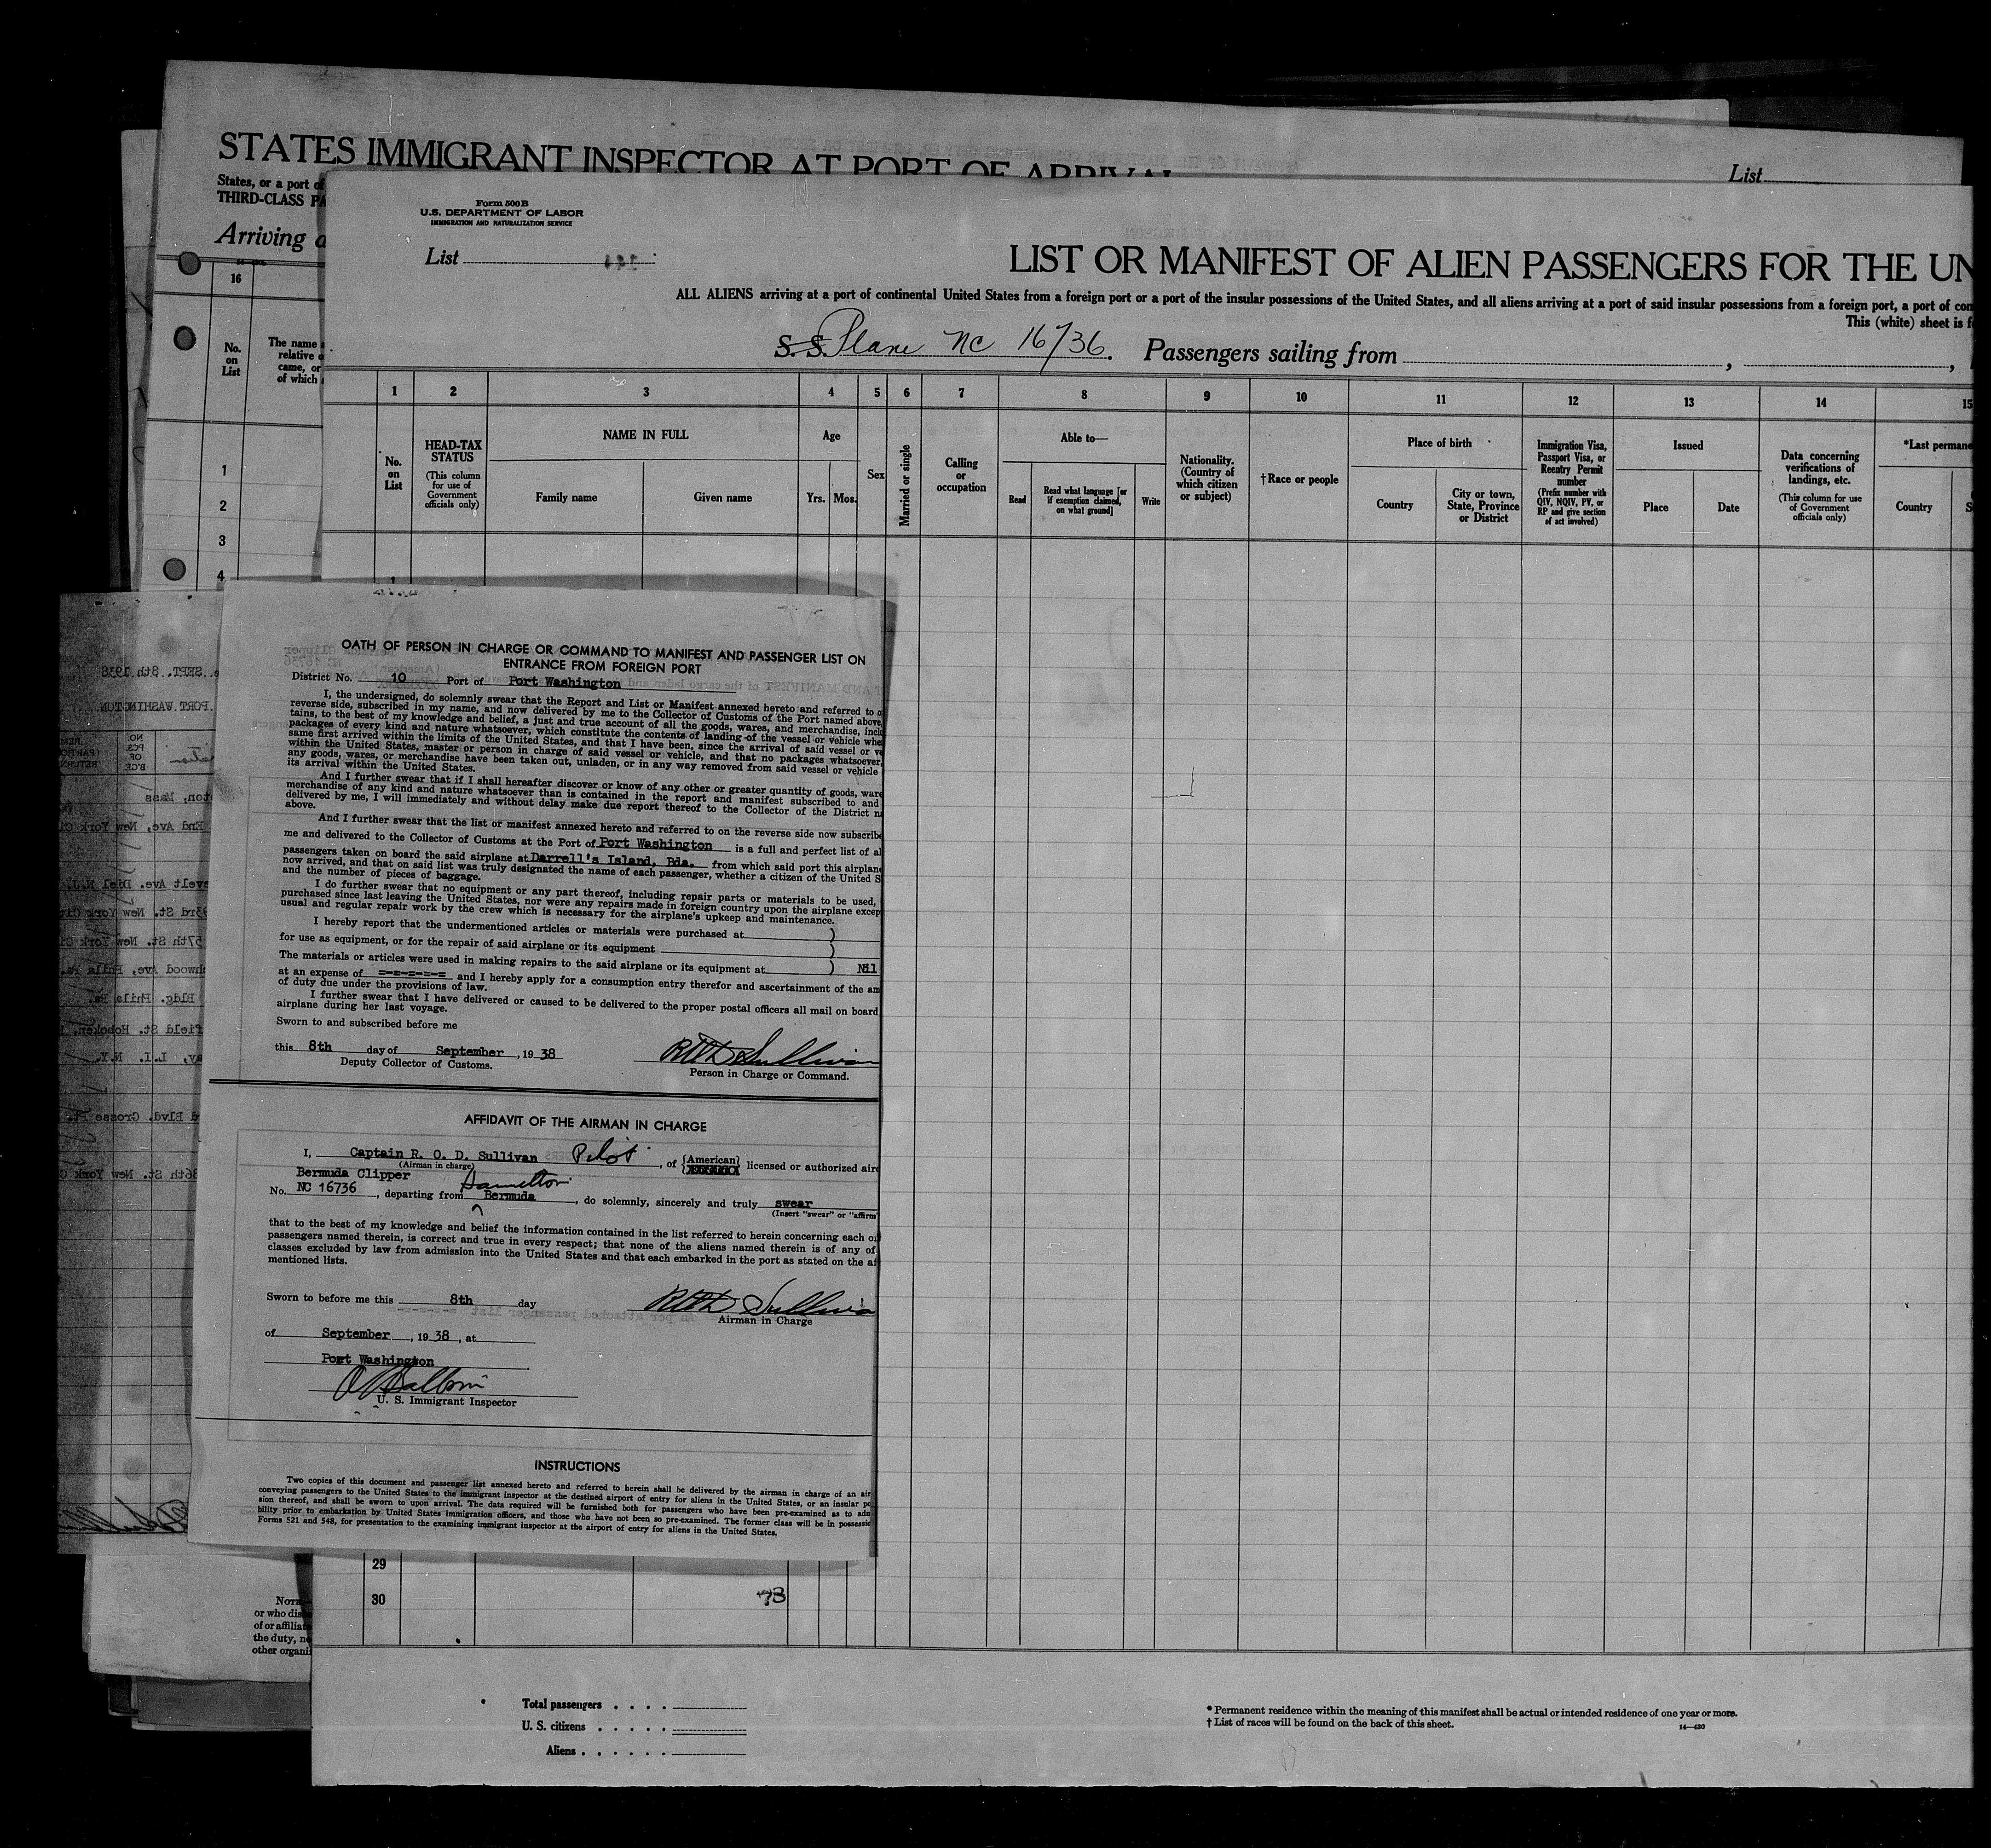 STATES IMMIGRANT INSPECTOR AT PORT OF ARRIVAL
List
States, or a port of
THIRD-CLASS PA
Arriving a
16
No. on List
The name
relative o
came, or
of which
1
2
3
4
Form 500 B
U.S. DEPARTMENT OF LABOR
IMMIGRATION AND NATURALIZATION SERVICE
List
LIST OR MANIFEST OF ALIEN PASSENGERS FOR THE UN
ALL ALIENS arriving at a port of continental United States from a foreign port or a port of the insular possessions of the United States, and all aliens arriving at a port of said insular possessions from a foreign port, a port of con
This (white) sheet is f
S.S. Plane NC 16736. Passengers sailing from
1 2 3 4 5 6 7 8 9 10 11 12 13 14 15
No. on List
HEAD-TAX STATUS
(This column for use of Government officials only)
NAME IN FULL
Family name
Given name
Age
Yrs. Mos.
Sex
Married or single
Calling or occupation
Able to—
Read
Read what language [or if exemption claimed, on what ground]
Write
Nationality. (Country of which citizen or subject)
†Race or people
Place of birth
Country
City or town, State, Province or District
Immigration Visa, Passport Visa, or Reentry Permit number
(Prefix number with QIV, NQIV, PV, or RP and give section of act involved)
Issued
Place
Date
Data concerning verifications of landings, etc.
(This column for use of Government officials only)
*Last permane
Country
1
OATH OF PERSON IN CHARGE OR COMMAND TO MANIFEST AND PASSENGER LIST ON
ENTRANCE FROM FOREIGN PORT
District No. 10 Port of Port Washington
I, the undersigned, do solemnly swear that the Report and List or Manifest annexed hereto and referred to o
reverse side, subscribed in my name, and now delivered by me to the Collector of Customs of the Port named above
tains, to the best of my knowledge and belief, a just and true account of all the goods, wares, and merchandise, incl
packages of every kind and nature whatsoever, which constitute the contents of landing of the vessel or vehicle whe
same first arrived within the limits of the United States, and that I have been, since the arrival of said vessel or ve
within the United States, master or person in charge of said vessel or vehicle, and that no packages whatsoever,
any goods, wares, or merchandise have been taken out, unladen, or in any way removed from said vessel or vehicle
its arrival within the United States.
And I further swear that if I shall hereafter discover or know of any other or greater quantity of goods, ware
merchandise of any kind and nature whatsoever than is contained in the report and manifest subscribed to and
delivered by me, I will immediately and without delay make due report thereof to the Collector of the District n
above.
And I further swear that the list or manifest annexed hereto and referred to on the reverse side now subscribe
me and delivered to the Collector of Customs at the Port of Port Washington is a full and perfect list of al
passengers taken on board the said airplane at Darrell's Island, Bda. from which said port this airplane
now arrived, and that on said list was truly designated the name of each passenger, whether a citizen of the United S
and the number of pieces of baggage.
I do further swear that no equipment or any part thereof, including repair parts or materials to be used,
purchased since last leaving the United States, nor were any repairs made in foreign country upon the airplane excep
usual and regular repair work by the crew which is necessary for the airplane's upkeep and maintenance.
I hereby report that the undermentioned articles or materials were purchased at )
for use as equipment, or for the repair of said airplane or its equipment )
The materials or articles were used in making repairs to the said airplane or its equipment at ) Nil
at an expense of =-=-=-=-=-= and I hereby apply for a consumption entry therefor and ascertainment of the am
of duty due under the provisions of law.
I further swear that I have delivered or caused to be delivered to the proper postal officers all mail on board
airplane during her last voyage.
Sworn to and subscribed before me
this 8th day of September, 1938
Deputy Collector of Customs.
Sullivan
Person in Charge or Command.
AFFIDAVIT OF THE AIRMAN IN CHARGE
I, Captain R. O. D. Sullivan Pilot, of {American} licensed or authorized airc
(Airman in charge)
Bermuda Clipper
No. NC 16736, departing from Hamilton Bermuda, do solemnly, sincerely and truly swear
(Insert "swear" or "affirm"
that to the best of my knowledge and belief the information contained in the list referred to herein concerning each o
passengers named therein, is correct and true in every respect; that none of the aliens named therein is of any of
classes excluded by law from admission into the United States and that each embarked in the port as stated on the af
mentioned lists.
Sworn to before me this 8th day
Sullivan
Airman in Charge
of September, 1938, at
Port Washington
U. S. Immigrant Inspector
INSTRUCTIONS
Two copies of this document and passenger list annexed hereto and referred to herein shall be delivered by the airman in charge of an air
conveying passengers to the United States to the immigrant inspector at the destined airport of entry for aliens in the United States, or an insular po
sion thereof, and shall be sworn to upon arrival. The data required will be furnished both for passengers who have been pre-examined as to adm
bility prior to embarkation by United States immigration officers, and those who have not been so pre-examined. The former class will be in possessio
Forms 521 and 548, for presentation to the examining immigrant inspector at the airport of entry for aliens in the United States.
29
30
73
NOTE
or who dis
of or affiliat
the duty, ne
other organi
Total passengers
U. S. citizens
Aliens
* Permanent residence within the meaning of this manifest shall be actual or intended residence of one year or more.
† List of races will be found on the back of this sheet.
14—430